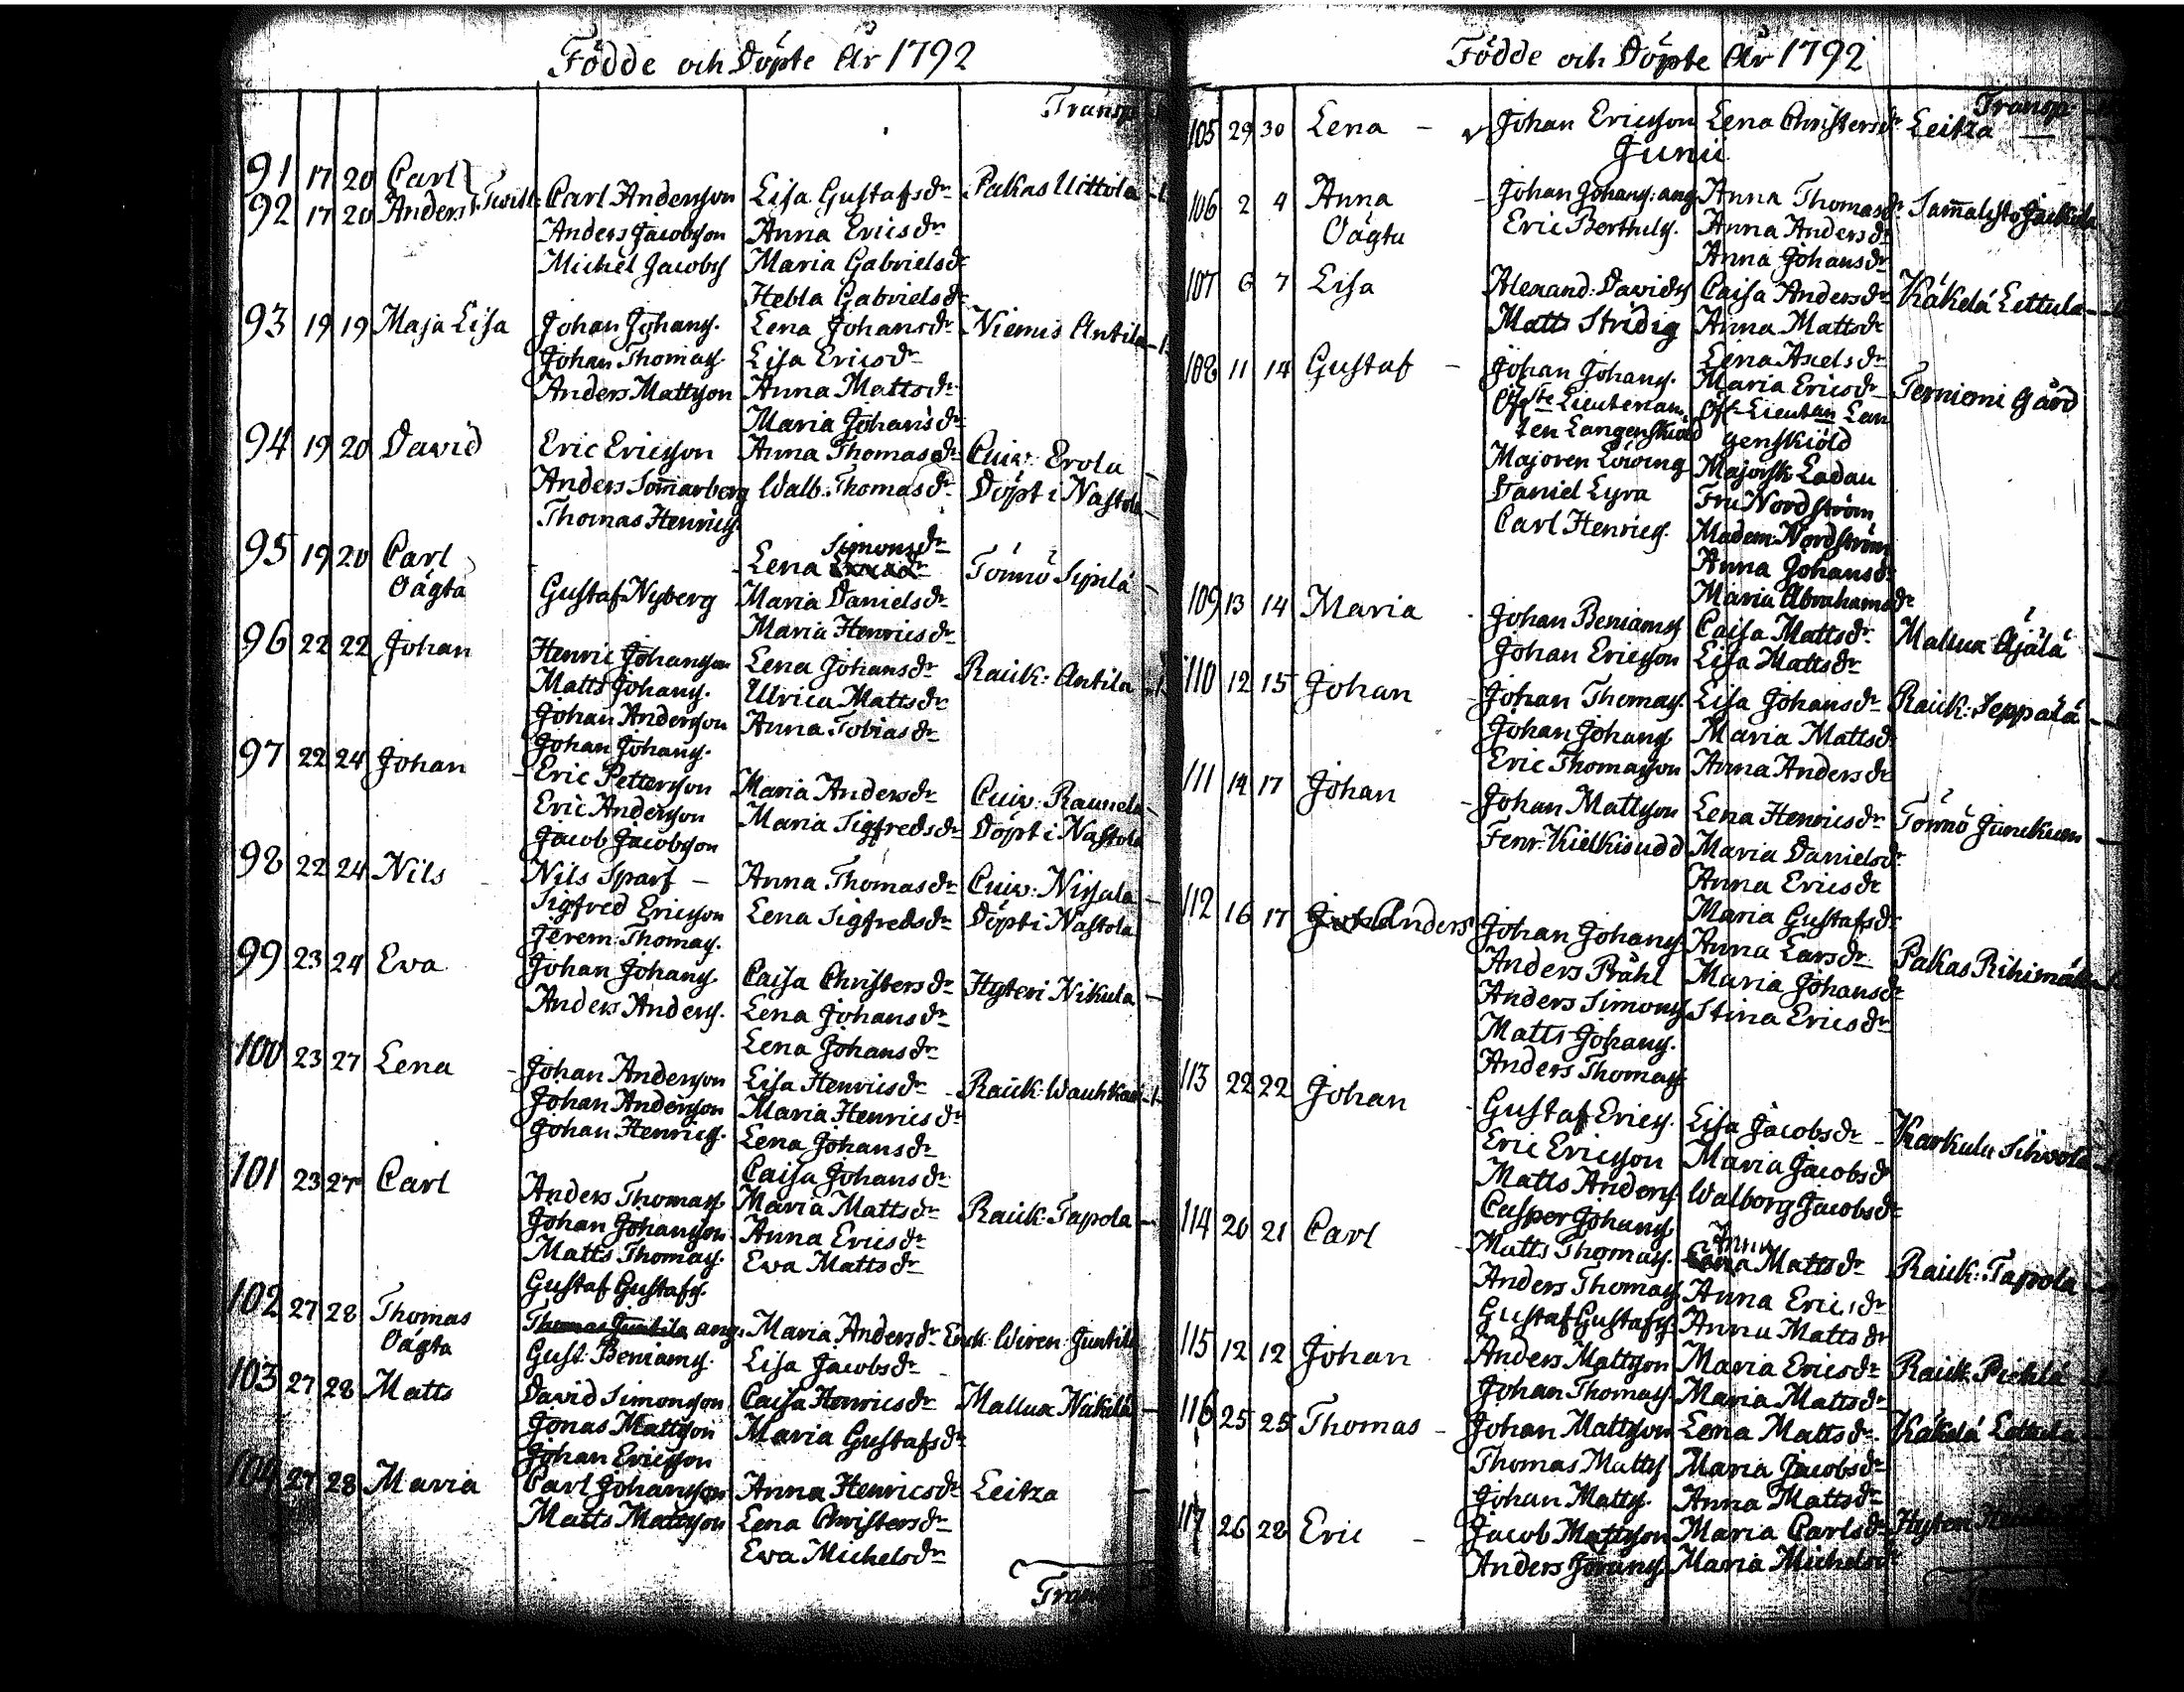 Födde och Döpte År 1792
Transp
91 17 20 Carl
92 17 20 Anders Twill: Carl Andersson Lisa Gustafsdr Pakas Uittola
Anders Jacobsson Anna Ericsdr
Michel Jacobss Maria Gabrielsdr
Hebla Gabrielsdr
93 19 19 Maja Lisa Johan Johanss. Lena Johansdr Niemis Antila
Johan Thomass Lisa Ericsdr
Anders Mattsson Anna Mattsdr
Maria Johansdr
94 19 20 David Eric Ericsson Anna Thomasdr Cuiv: Erola
Anders Som̄arberg Walb: Thomasdr Döpt i Nastola
Thomas Henricss
Simonsdr
95 19 20 Carl - Lena Tönnö Sipilä
Oägta Gustaf Nyberg Maria Danielsdr
Maria Henricsdr
96 22 22 Johan Henric Johansson Lena Johansdr Raick: Antila
Matts Johanss. Ulrica Mattsdr
Johan Andersson Anna Tobiasdr
Johan Johanss.
97 22 24 Johan - Eric Pettersson Maria Andersdr Cuiv: Raunela
Eric Andersson Maria Sigfredsdr Döpt i Nastola
Jacob Jacobsson
98 22 24 Nils - Nils Sparf - Anna Thomasdr Cuiv: Nirjala
Sigfred Ericsson Lena Sigfredsdr Döpt i Nastola
Jerem: Thomass.
99 23 24 Ewa Johan Johanss Caisa Christersdr Hyteri Nikula
Anders Anderss. Lena Johansdr
Lena Johansdr
100 23 27 Lena - Johan Andersson Lisa Henricsdr - Raick: Wauhkan
Johan Andersson Maria Henricsdr
Johan Henricss. Lena Johansdr
Caisa Johansdr
101 23 27 Carl Anders Thomass. Maria Mattsdr Raick: Tapola
Johan Johansson Anna Ericsdr
Matts Thomass. Ewa Mattsdr
Gustaf Gustafss.
102 27 28 Thomas Thomas Juntila ang: Maria Andersdr Enck: Wiren: Juntila
Oägta Gust: Beniamss. Lisa Jacobsdr
103 27 28 Matts David Simonsson Caisa Henricsdr Mallua Nakilä
Jonas Mattsson Maria Gustafsdr
Johan Ericsson
104 27 28 Maria Carl Johansson Anna Henricsdr Leitza
Matts Mattsson Lena Christersdr
Ewa Michelsdr
Födde och Döpte År 1792
Transp:
105 29 30 Lena - Johan Ericsson Lena Christersdr Leitza
Junii
106 2 4 Anna - Johan Johanss: ang Anna Thomasdr Sam̄alisto
Oägta Eric Berthilss. Anna Andersdr
Anna Johansdr
107 6 7 Lisa Alexand: Davidss Caisa Andersdr Käkelä Lettula
Matts Stridig Anna Mattsdr
Lena Axelsdr
108 11 14 Gustaf - Johan Johanss. Maria Ericsdr Terniemi Gård
Öfste Lieutenan Öfst Lieutan Lan
ten Langenskiöld genskiöld
Majoren Löwing Majorsk: Ladau
Daniel Lyra Fru Nordström
Carl Henricss. Madem: Nordström
Anna Johansdr
Maria Abrahamsdr
109 13 14 Maria - Johan Beniamss Caisa Mattsdr Mallua Äjälä
Johan Ericsson Lisa Mattsdr
110 12 15 Johan - Johan Thomass. Lisa Johansdr Raick: Seppälä
Johan Johanss Maria Mattsdr
Eric Thomasson Anna Andersdr
111 14 17 Johan - Johan Mattsson Lena Henricsdr Tönnö Junckuen
Fenr: Kielkisudd Maria Danielsdr
Anna Ericsdr
Maria Gustafsdr
112 16 17 Anders Johan Johanss Anna Larsdr Pakas Rihimäki
Anders Pråhl Maria Johansdr
Anders Simonss Stina Ericsdr
Matts Johanss.
Anders Thomass
113 22 22 Johan - Gustaf Ericss. Lisa Jacobsdr - Karkula Sihvola
Eric Ericsson Maria Jacobsdr
Matts Anderss. Walborg Jacobsdr
Casper Johanss
Anna
114 20 21 Carl - Matts Thomass. Mattsdr Raick: Tapola
Anders Thomass Anna Ericsdr
Gustaf Gustafss. Anna Mattsdr
115 12 12 Johan Anders Mattsson Maria Ericsdr Raick: Piehlä
Johan Thomass. Maria Mattsdr
116 25 25 Thomas - Johan Mattsson Lena Mattsdr Käkelä Lettula
Thomas Mattss Maria Jacobsdr
Johan Mattss. Anna Mattsdr
117 26 28 Eric - Jacob Mattsson Maria Carlsdr Hyteri
Anders Joranss. Maria Michelsdr